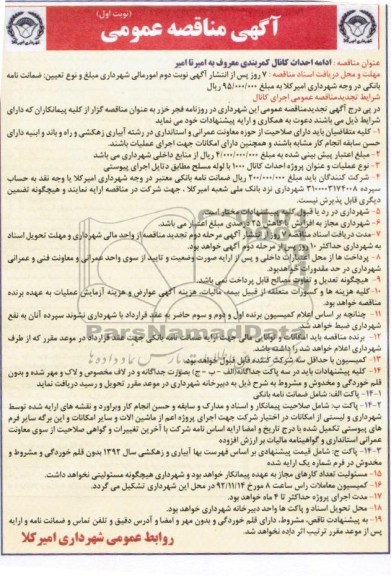 (نوبت اول)
آگهی مناقصه عمومی
عنوان مناقصه : ادامه احداث کانال کمربندی معروف به امیر تا امیر
مهلت و محل دریافت اسناد مناقصه : ۷ روز پس از انتشار آگهی نوبت دوم امور مالی شهرداری مبلغ و نوع تعیین: ضمانت نامه
بانکی در وجه شهرداری امیرکلا به مبلغ ۹۵/۰۰۰/۰۰۰ ریال
شرایط تجدید مناقصه عمومی اجرای کانال
در پی درج آگهی تجدید مناقصه عمومی این شهرداری در روزنامه فجر خزر به عنوان مناقصه گزار از کلیه پیمانکاران که دارای
شرایط ذیل می باشند دعوت به همکاری و ارایه پیشنهادات خود می نماید
۱- کلیه متقاضیان باید دارای صلاحیت از حوزه معاونت عمرانی و استانداری در رشته آبیاری زهکشی و راه و باند و ابنیه دارای
حسن سابقه انجام کار مشابه باشند و همچنین دارای امکانات جهت اجرای عملیات باشند.
۲- مبلغ اعتبار پیش بینی شده به مبلغ ۴/۰۰۰/۰۰۰/۰۰۰ ریال از منابع داخلی شهرداری می باشد
۳- نوع عملیات و عنوان پروژه احداث کانال ۱۰۰۰ با لوله مسلح مطابق دتایل اجرای پیوستی
۴- شرکت کنندگان باید مبلغ ۲۰۰/۰۰۰/۰۰۰ ریال ضمانت نامه بانکی معتبر در وجه شهرداری امیرکلا یا وجه نقد به حساب
سپرده ۳۱۰۰۰۰۳۱۷۴۰۰۸ شهرداری نزد بانک ملی شعبه امیرکلا ، جهت شرکت در مناقصه ارایه نمایند و هیچگونه تضمین
دیگری قابل پذیرش نیست.
۵- شهرداری در رد یا قبول کلیه پیشنهادات مختار است
۶- شهرداری مجاز به افزایش یا کاهش ۲۵ درصدی مبلغ اعتبار می باشد.
۷- مدت دریافت اسناد مناقصه ۷ روز از انتشار آگهی مرحله دوم تجدید مناقصه از واحد مالی شهرداری و مهلت تحویل اسناد
به شهرداری حداکثر ۱۰ روز پس از مرحله دوم آگهی خواهد بود.
۸- پرداخت ها از محل اعتبارات داخلی و پس از ارایه صورت وضعیت و تایید از سوی واحد عمرانی و معاونت فنی و عمرانی
شهرداری در حد مقدورات خواهد بود.
۹- هیچگونه تعدیل و تفاوت مصالح قابل پرداخت نمی باشد.
۱۰- کلیه هزینه ها و کسورات متعلقه از قبیل بیمه، مالیات، هزینه آگهی عوارض و هزینه آزمایش عملیات به عهده برنده
مناقصه خواهد بود.
۱۱- چنانچه بر اساس اعلام کمیسیون برنده اول و دوم و سوم حاضر به عقد قرارداد با شهرداری نشوند سپرده آنان به نفع
شهرداری ضبط خواهد شد.
۱۲- برنده مناقصه باید امکانات و توانایی مالی جهت ارایه ضمانت نامه بانکی جهت عقد قرارداد در موعد مقرر که از طرف
شهرداری اعلام خواهد شد را داشته باشد.
۱۳- کمیسیون با حداقل سه شرکت کننده قابل قبول خواهد بود.
۱۴- کلیه پیشنهادات باید در سه پاکت جداگانه الف – ب – ج) بصورت جداگانه و در لاف مخصوص و لاک و مهر شده و بدون
قلم خوردگی و مخدوش و مشروط به شرح ذیل به دبیرخانه شهرداری در موعد مقرر تحویل و رسید دریافت نماید
۱۴-۱- پاکت الف: شامل ضمانت نامه بانکی
۱۴-۲- پاکت ب: شامل صلاحیت پیمانکار و اسناد و مدارک و سابقه و حسن انجام کار و برآورد و نقشه های ارایه شده توسط
شهرداری و لیستی از امکانات در اختیار شرکت جهت اجرای پروژه اعم از ماشین الات و سایر امکانات و این برگه سایر فرم
های پیوستی تکمیل شده با درج تاریخ و امضا ارایه اساس نامه شرکت با آخرین تغییرات و گواهی صلاحیت از سوی معاونت
عمرانی استانداری و گواهینامه مالیات بر ارزش افزوده
۱۴-۳- پاکت ج: شامل قیمت پیشنهادی بر اساس فهرست بها آبیاری و زهکشی سال ۱۳۹۲ بدون قلم خوردگی و مشروط و
مخدوش در فرم شماره یک ارایه شده
۱۵- مسئولیت تعداد کارهای مجاز به عهده پیمانکار خواهد بود و شهرداری هیچگونه مسئولیتی نخواهد داشت.
۱۶- کمیسیون معاملات راس ساعت ۸ مورخ ۹۲/۱۱/۱۴ در محل این شهرداری تشکیل می گردد.
۱۷- مدت اجرای پروژه حداکثر تا ۴ ماه خواهد بود.
۱۸- محل تحویل اسناد و پاکت ها واحد دبیرخانه شهرداری خواهد بود.
۱۹- به پیشنهادات ناقص، مشروط، دارای قلم خوردگی و بدون مهر و امضا و آدرس دقیق و تلفن تماس و ضمانت نامه و ارایه
پس از موعد مقرر ترتیب اثر داده نخواهد شد.
روابط عمومی شهرداری امیرکلا
ParsNamadData